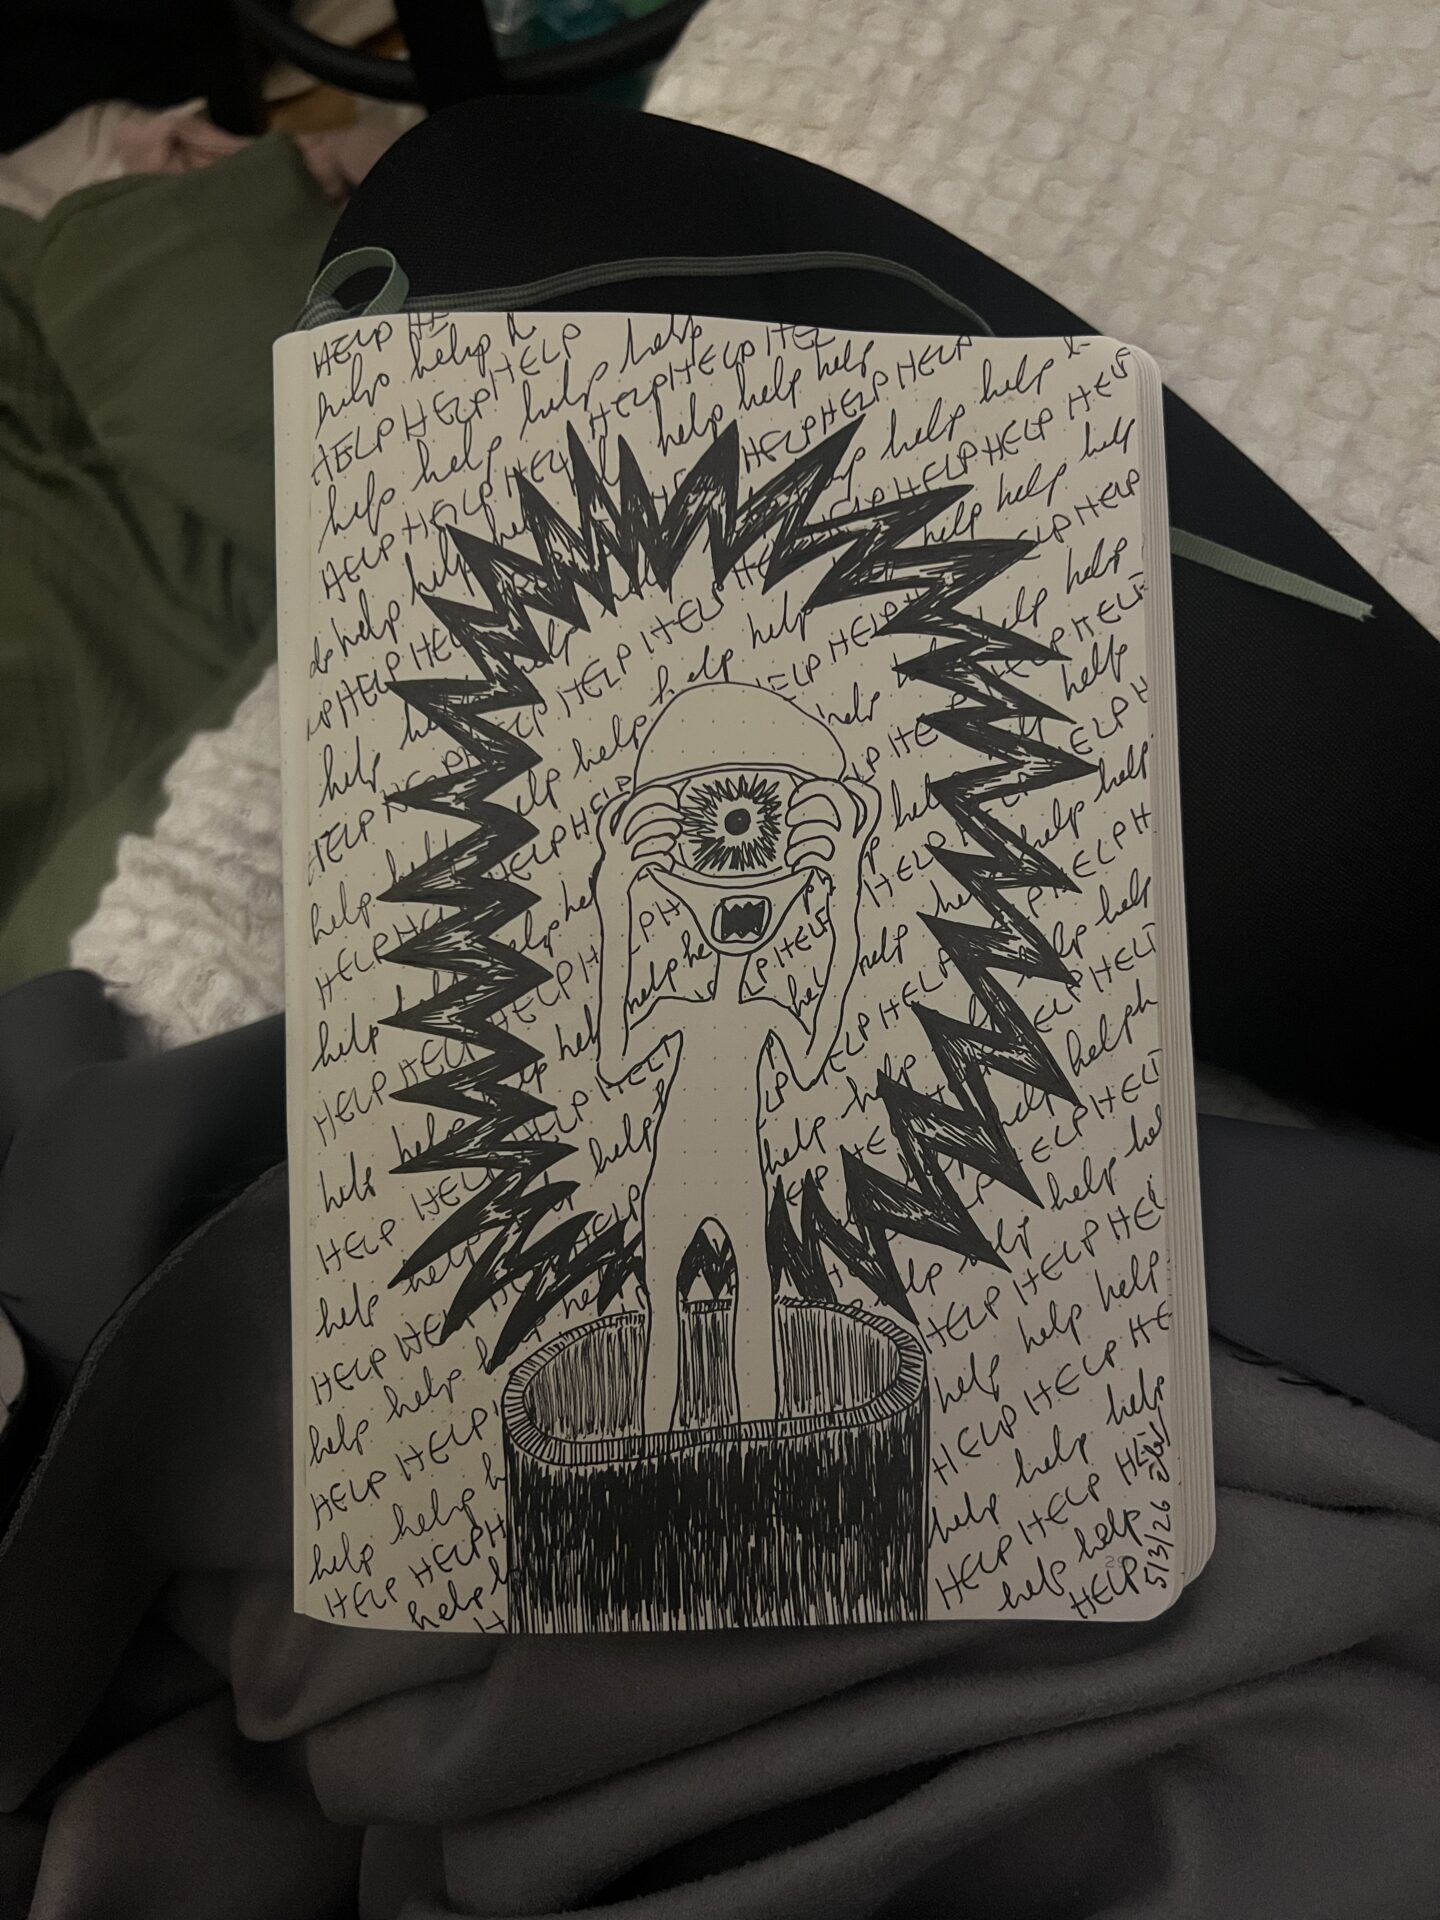 HELP HE
help help h
HELP HELP HELP
help help help help help
HELP HELP HEL HELP HELP HEL
help help he help help help
HELP HEL HELP HELP HELP
help help help help help h
HELP HE HELP HELP HE
help hel help help help help
HELP HEL HELP HELP HELP HELP
help help help help help
HELP HEL HELP HELP HELP HELP
help help help help help help
HELP HEL HELP HELP HELP
help help help help help
HELP HELP HELP HELP
help help help help
HELP HELP HELP HELP
help help help help
HELP HELP HELP HELP
help help help
HELP HELP HELP HE
help help help
HELP HELP HEL
help help
HELP
5/3/26
29